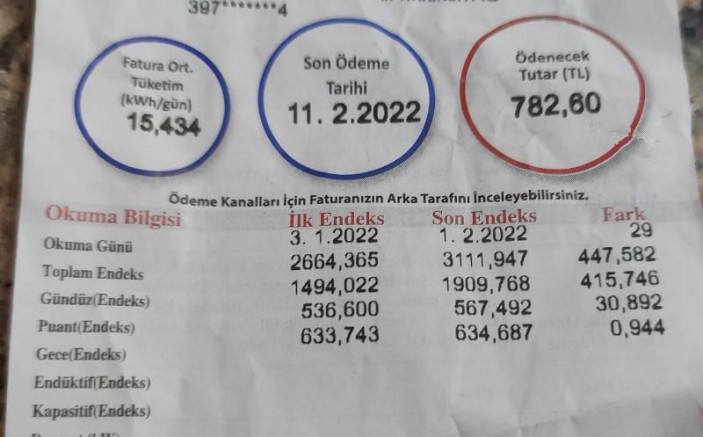 397*******4
Fatura Ort.
Tüketim
(kWh/gün)
15,434
Son Ödeme
Tarihi
11. 2.2022
Ödenecek
Tutar (TL)
782,60
Ödeme Kanalları İçin Faturanızın Arka Tarafını İnceleyebilirsiniz.
Okuma Bilgisi İlk Endeks Son Endeks Fark
Okuma Günü 3. 1.2022 1. 2.2022 29
Toplam Endeks 2664,365 3111,947 447,582
Gündüz(Endeks) 1494,022 1909,768 415,746
Puant(Endeks) 536,600 567,492 30,892
Gece(Endeks) 633,743 634,687 0,944
Endüktif(Endeks)
Kapasitif(Endeks)